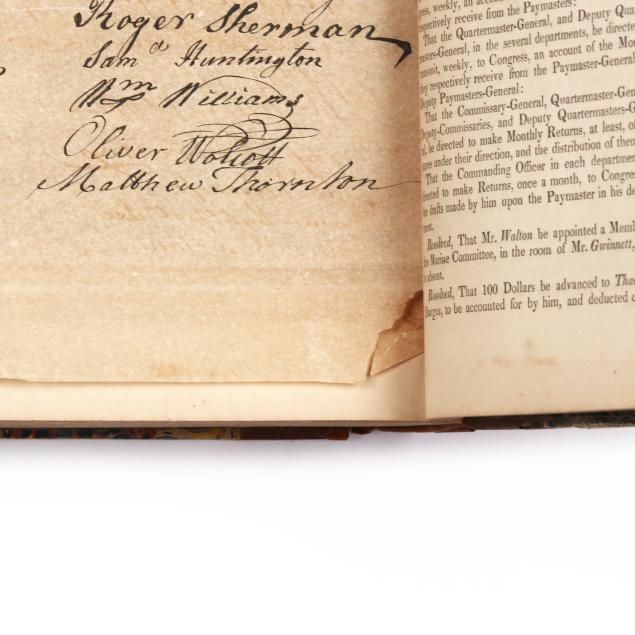 Roger Sherman
Sam el Huntington
Wm Williams
Oliver Wolcott
Matthew Thornton
press, weekly, an account
respectively receive from the Paymasters:
That the Quartermaster-General, and Deputy Qua
masters-General, in the several departments, be directe
transmit, weekly, to Congress, an account of the Mo
they respectively receive from the Paymaster-General
Deputy Paymasters-General:
That the Commissary-General, Quartermaster-Gen
Deputy-Commissaries, and Deputy Quartermasters-G
be directed to make Monthly Returns, at least, o
under their direction, and the distribution of them
That the Commanding Officer in each departmen
directed to make Returns, once a month, to Congres
the drafts made by him upon the Paymaster in his de
ment.
Resolved, That Mr. Walton be appointed a Memb
the Marine Committee, in the room of Mr. Gwinnett,
is absent.
Resolved, That 100 Dollars be advanced to Thad
Burges, to be accounted for by him, and deducted o